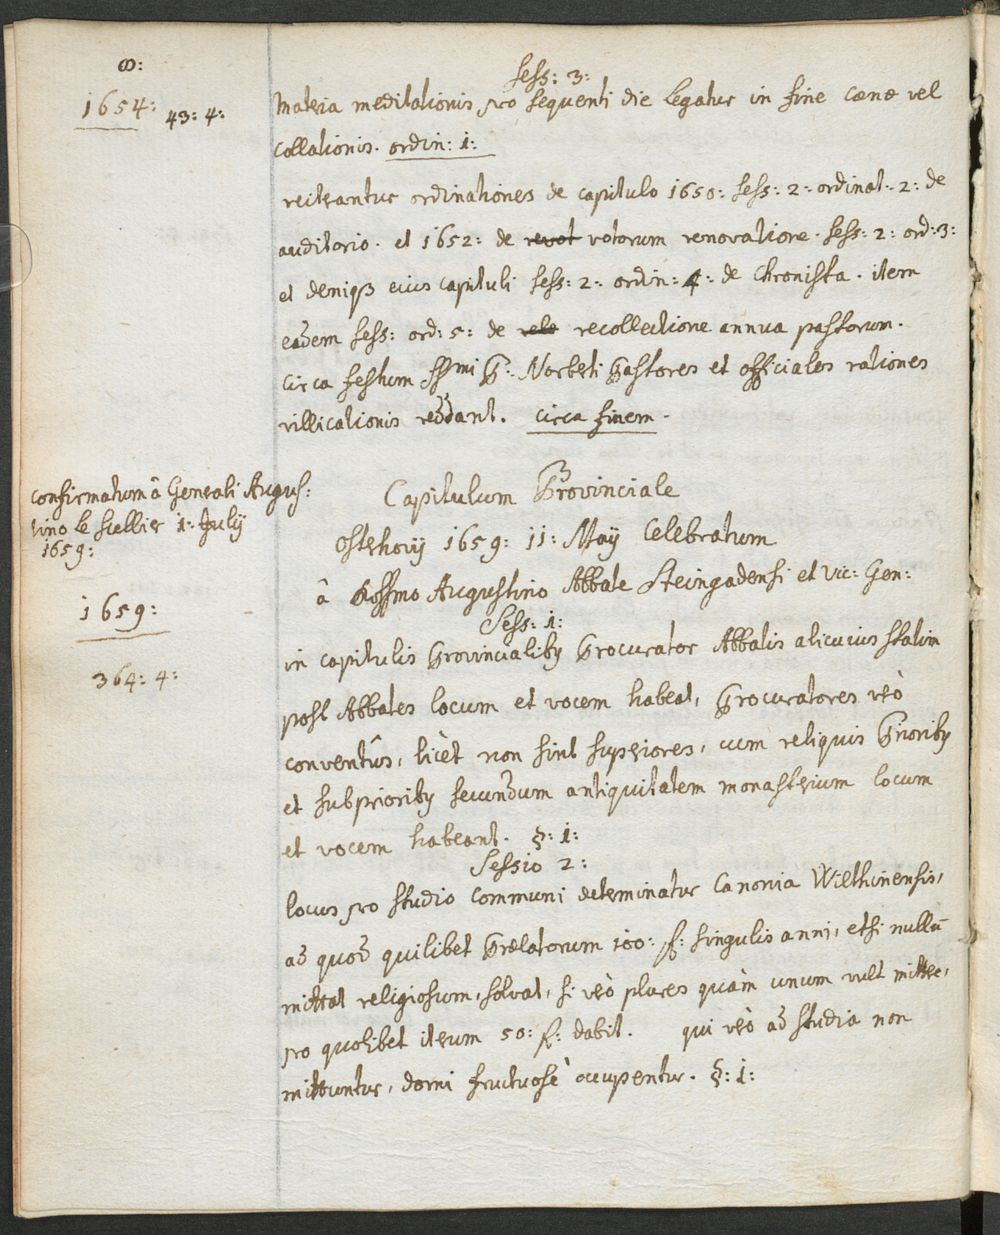 ꝏ:
1654: 43: 4:
Sess: 3:
Materia meditationis pro sequenti die legatur in fine cœnæ vel
collationis. ordin: 1:
reiterantur ordinationes de capitulo 1650: Sess: 2: ordinat: 2: de
auditorio. et 1652: de revot votorum renovatione. Sess: 2: ord: 3:
et deniqꝫ eius capituli Sess: 2: ordin: 4: de Chronista. item
eadem Sess: ord: 5: de rele recollectione annua pastorum.
Circa festum SSmi P: Norberti Pastores et officiales rationes
villicationis reddant. circa finem.
confirmatum â Generali Augus:
tino le Scellier 1: July
1659:
Capitulum Provinciale
Osterhovij 1659: 11: Maij Celebratum
â Rssmo Augustino Abbate Steingadensi et Vic: Gen:
1659:
364: 4:
Sess: 1:
in capitulis Provincialibꝰ Procurator Abbatis alicuius statim
post Abbates locum et vocem habeat, Procuratores verò
conventûs, licèt non sint superiores, cum reliquis Prioribꝰ
et subprioribꝰ secundum antiquitatem monasterium locum
et vocem habeant. §: 1:
Sessio 2:
locus pro studio communi determinatur Canonia Wilthinensis,
ad quod quilibet Prælatorum 100: f: singulis annis, etsi nullū
mittat religiosum, solvat, si verò plures quàm unum vult mittere,
pro quolibet iterum 50: f: dabit. qui verò ad studia non
mittuntur, domi fructuosè occupentur. §: 1: